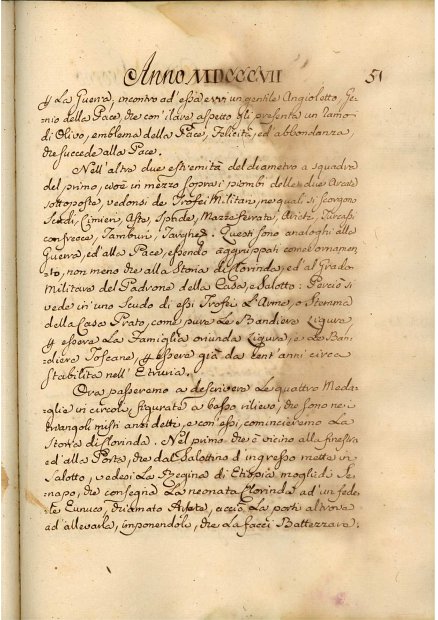 Anno MDCCCVII 51
p La Guerra, incontro ad' essa evvi un gentile Angioletto, Ge-
nio della Pace, che con' ilare aspetto gli presenta un Ramo
di Olivo, emblema della Pace, Felicità, ed' abbondanza,
che succede alla Pace.
Nell' altra due estremità del diametro a squadra
del primo, cioè in mezzo sopra i piombi delle due Arcate
sottoposte, vedonsi de Trofei Militari, ne quali si scorgono
Scudi, Cimieri, Aste, Spade, Mazze ferrate, Ariete, Turcassi
con frecce, Tamburi, Targhe: Questi sono analoghi alla
Guerra, ed' alla Pace, essendo aggruppati come ornamen-
to, non meno che alla Storia di Clorinda, ed' al Grado
Militare del Padrone della Casa, e Salotto: Perciò si
vede in' uno Scudo di essi Trofei L'Arme, o Stemma
della Casa Prato, come pure Le Bandiere Ligura
p essere La Famiglia oriunda Ligura, e Le Ban-
diere Toscane, p essere già da cent' anni circa
Stabilita nell' Etruria.
Ora passeremo a descrivere Le quattro Meda-
glie in circolo figurate a basso rilievo, che sono nei
triangoli misti anzi detti, e con' essi, comincieremo La
Storia di Clorinda. Nel primo che è vicino alla finestra
ed' alla Porta, che dal Salottino d' ingresso mette in
Salotto, vedesi La Regina di Etiopia moglie di Se-
napo, che consegna La neonata Clorinda ad' un fede-
le Eunuco, chiamato Arsete, acciò La porti altrove
ad' allevarla, imponendole, che La facci Battezzare: